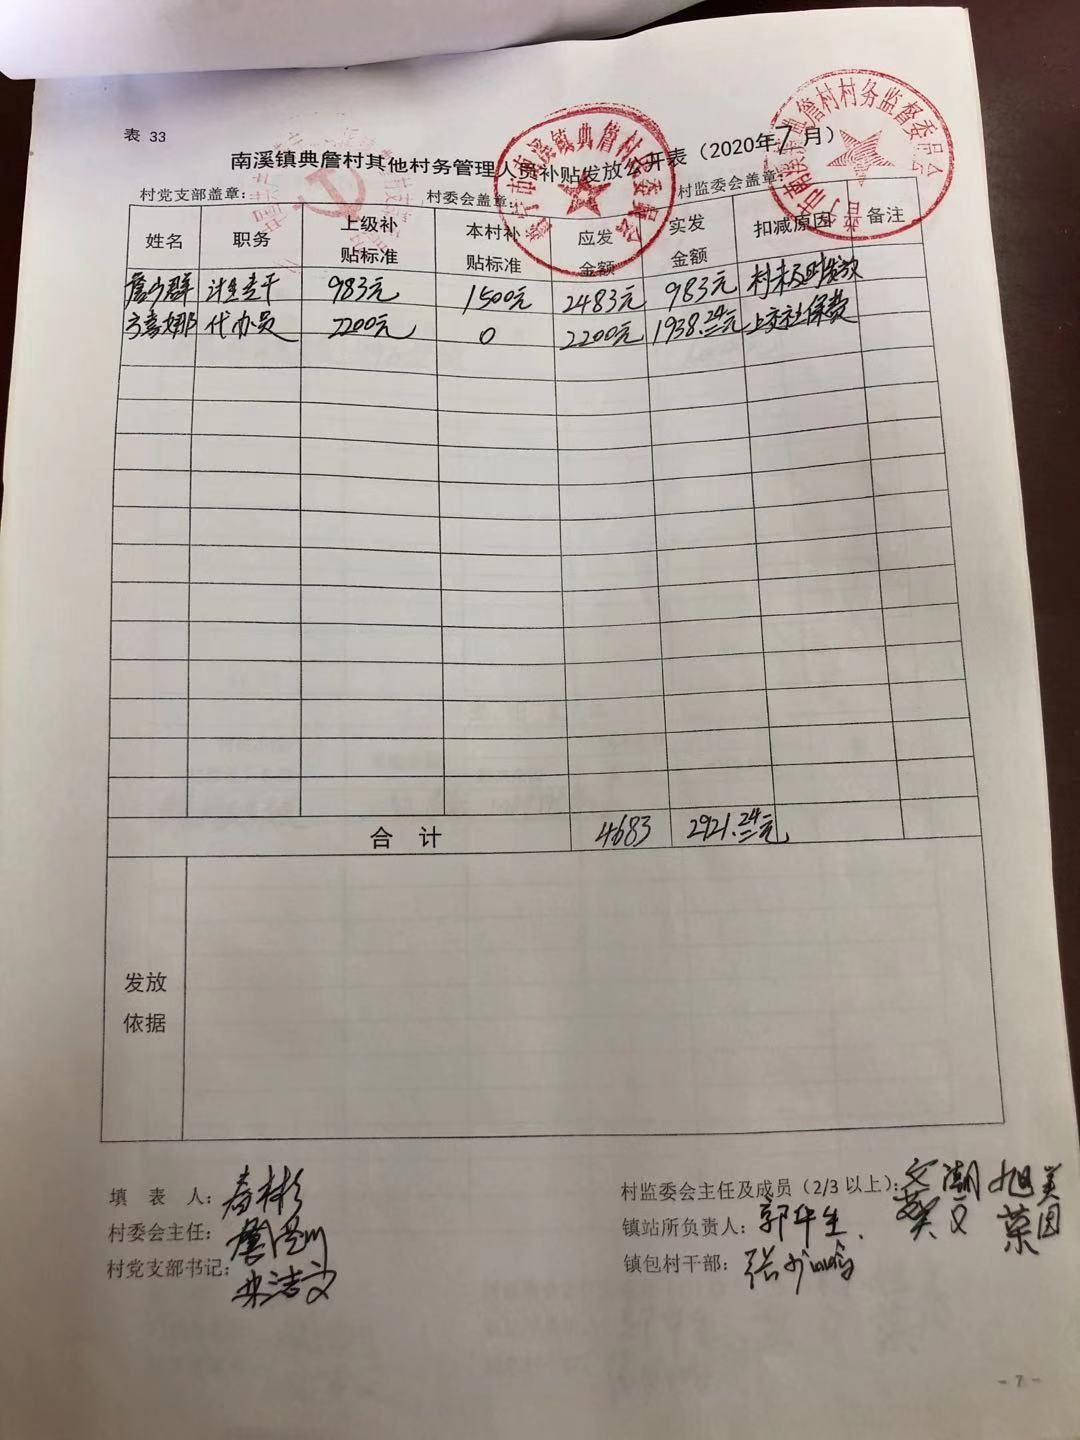 表 33
南溪镇典詹村其他村务管理人员补贴发放公开表（2020年7月）
村党支部盖章： 村委会盖章： 村监委会盖章：
姓名 职务 上级补贴标准 本村补贴标准 应发金额 实发金额 扣减原因 备注
詹少群 计生专干 983元 1500元 2483元 983元 村未及时发放
代办员 2200元 0 2200元 1938.24元 上交社保费
合 计 4683 2921.24元
发放
依据
填 表 人：
村委会主任：
村党支部书记：
村监委会主任及成员（2/3 以上）：
镇站所负责人：郭华生
镇包村干部：
- 7 -